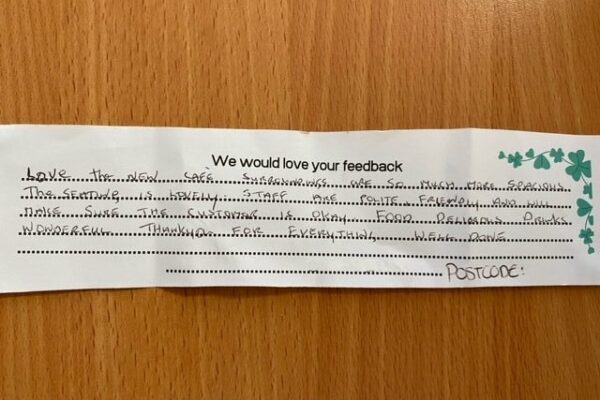 We would love your feedback
Love the new cafe surroundings are so much more spacious.
The seating is lovely staff are polite friendly and will
make sure the customer is okay food delicious drinks
wonderful thankyou for everything well done
POSTCODE: